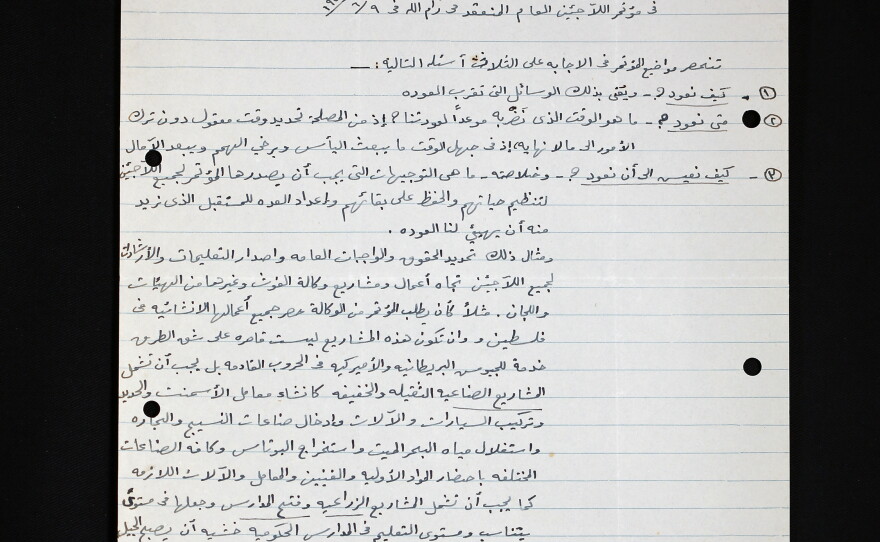 فى مؤتمر اللآجئين العام المنعقد فى رام الله فى ٩/٦/
تنحصر مواضيع المؤتمر فى الاجابه على الثلاثة أسئله التاليه : ــ
١ - كيف نعود ؟ - ويتقى بذلك الوسائل التى تقرب العوده
٢ متى نعود ؟ - ما هو الوقت الذى نضربه موعداً لعودتنا ؟ إذ من المصلحة تحديد وقت معقول دون ترك
الأمور الى ما لا نهاية إذ فى جهل الوقت ما يبعث اليأس ويرخي الهمم ويبعد الآمال
٣ - كيف نعيش الى أن نعود ؟ - وخلاصته - ما هى التوجيهات التى يجب أن يصدرها المؤتمر لجميع اللآجئين
لتنظيم حياتهم والحفظ على بقائهم واعداد العده للمستقبل الذى نريد
منه أن يهيئ لنا العوده .
ومثال ذلك تحديد الحقوق والواجبات العامه واصدار التعليمات والأرشادات
لجميع اللآجئين تجاه أعمال ومشاريع وكالة الغوث وغيرها من الهيئات
واللجان . مثلاً كأن يطلب المؤتمر من الوكالة حصر جميع أعمالها الانشائيه فى
فلسطين و وان تكون هذه المشاريع ليست قاصره على شق الطرق
خدمة للجيوش البريطانيه والأميركيه فى الحروب القادمه بل يجب أن تشمل
المشاريع الصناعيه الثقيله والخفيفه كانشاء معامل الأسمنت والحديد
وتركيب السيارات والآلات وادخال صناعات النسيج والنجاره
واستغلال مياه البحر الميت واستخراج البوتاس وكافة الصناعات
المختلفه باحضار المواد الأوليه والفنيين والمعامل والآلات اللازمه
كما يجب أن تشمل المشاريع الزراعيه وفتح المدارس وجعلها فى مستوى
يتناسب ومستوى التعليم فى المدارس الحكوميه خشيه أن يصبح الجيل